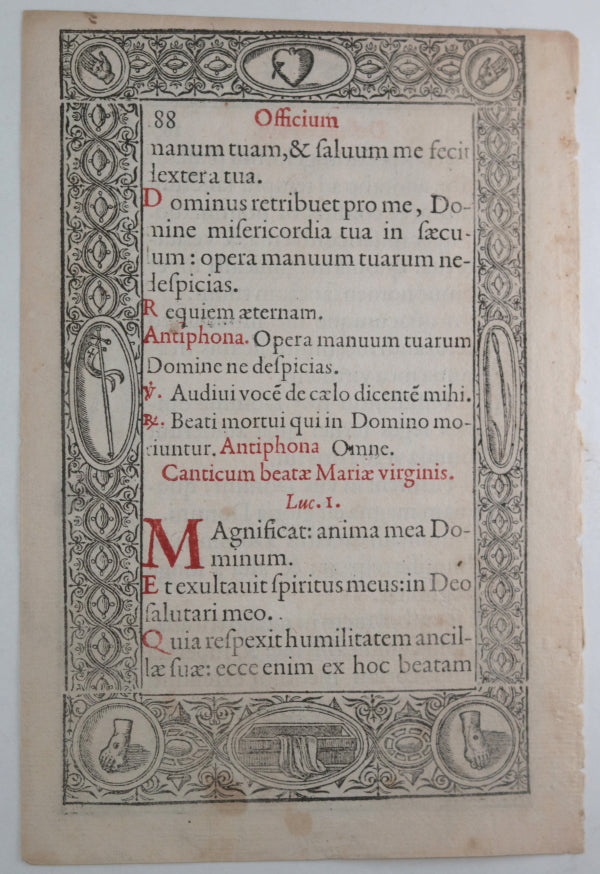 88 Officium
manum tuam, & ſaluum me fecit
dextera tua.
Dominus retribuet pro me, Do-
mine misericordia tua in ſæcu-
lum : opera manuum tuarum ne
deſpicias.
Requiem æternam.
Antiphona. Opera manuum tuarum
Domine ne deſpicias.
℣. Audiui vocē de cælo dicentē mihi.
℟. Beati mortui qui in Domino mo-
riuntur. Antiphona Omne.
Canticum beatæ Mariæ virginis.
Luc. 1.
MAgnificat: anima mea Do-
minum.
Et exultauit ſpiritus meus: in Deo
ſalutari meo.
Quia reſpexit humilitatem ancil-
læ ſuæ: ecce enim ex hoc beatam